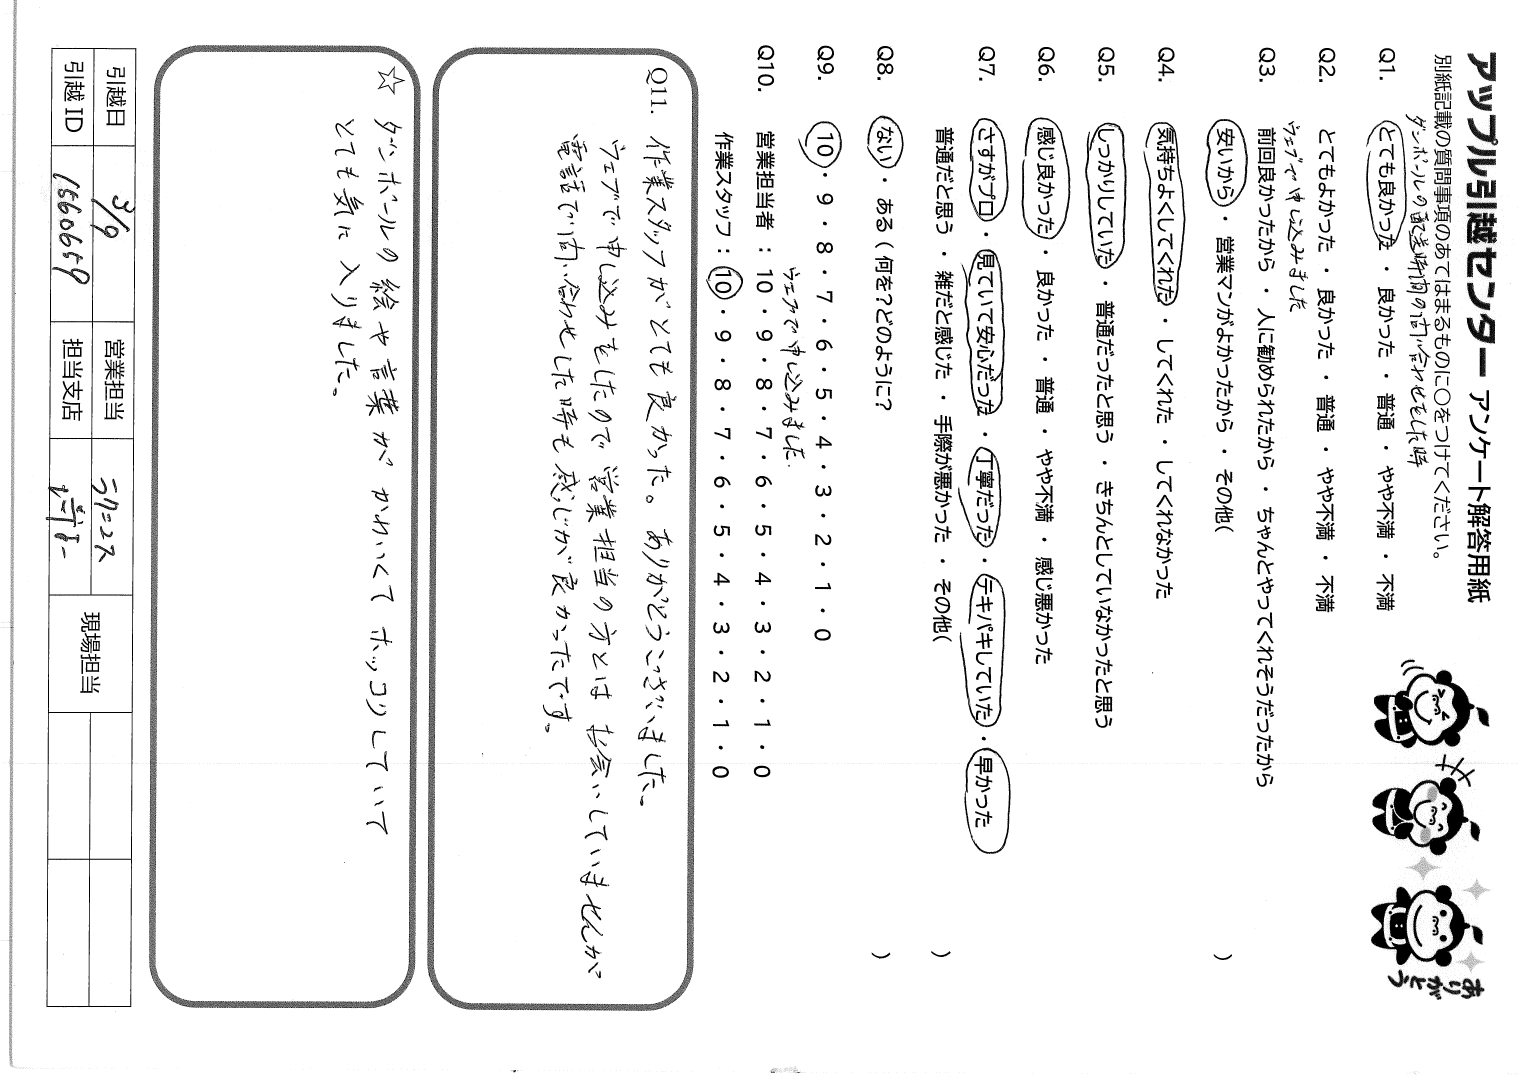 アップル引越センター アンケート解答用紙
別紙記載の質問事項のあてはまるものに○をつけてください。
ダンボールの配送時間の問い合わせをした時
Q1. とても良かった ・ 良かった ・ 普通 ・ やや不満 ・ 不満
Q2. とてもよかった ・ 良かった ・ 普通 ・ やや不満 ・ 不満
ウェブで申し込みました
Q3. 前回良かったから ・ 人に勧められたから ・ ちゃんとやってくれそうだったから
安いから ・ 営業マンがよかったから ・ その他( )
Q4. 気持ちよくしてくれた ・ してくれた ・ してくれなかった
Q5. しっかりしていた ・ 普通だったと思う ・ きちんとしていなかったと思う
Q6. 感じ良かった ・ 良かった ・ 普通 ・ やや不満 ・ 感じ悪かった
Q7. さすがプロ ・ 見ていて安心だった ・ 丁寧だった ・ テキパキしていた ・ 早かった
普通だと思う ・ 雑だと感じた ・ 手際が悪かった ・ その他( )
Q8. ない ・ ある ( 何を?どのように? )
Q9. 10 ・ 9 ・ 8 ・ 7 ・ 6 ・ 5 ・ 4 ・ 3 ・ 2 ・ 1 ・ 0
ウェブで申し込みました.
Q10. 営業担当者 : 10 ・ 9 ・ 8 ・ 7 ・ 6 ・ 5 ・ 4 ・ 3 ・ 2 ・ 1 ・ 0
作業スタッフ : 10 ・ 9 ・ 8 ・ 7 ・ 6 ・ 5 ・ 4 ・ 3 ・ 2 ・ 1 ・ 0
Q11. 作業スタッフがとても良かった。ありがとうございました。
ウェブで申し込みをしたので営業担当の方とはお会いしていませんが
電話で問い合わせした時も感じが良かったです。
☆ ダンボールの絵や言葉がかわいくてホッコリしていて
とても気に入りました。
引越日 3/9 営業担当 現場担当
引越ID 1560659 担当支店
ありがとう